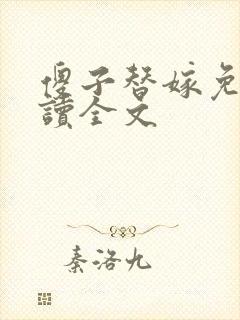 傻子替嫁免
讀全文
秦洛九